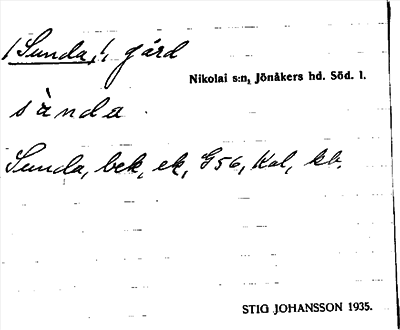 /Sunda,/, gård
Nikolai s:n, Jönåkers hd. Söd. l.
sànda
Sunda, bek, ek, G56, Kal, kb.
STIG JOHANSSON 1935.